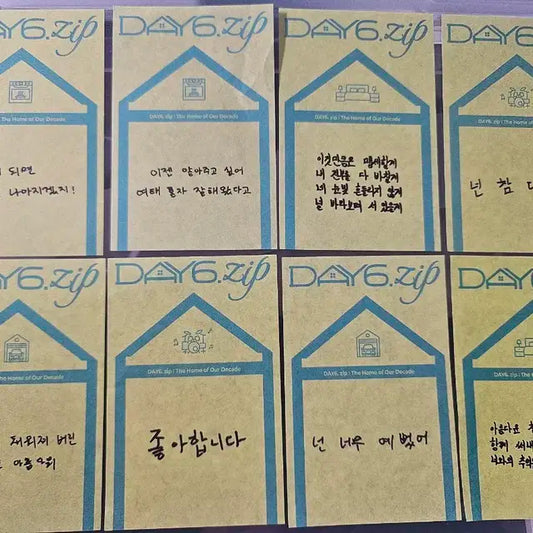 DAY6.zip
The Home of Our Decade
되면
나아지겠지!
DAY6.zip
DAY6. zip : The Home of Our Decade
이젠 알아주고 싶어
여태 혼자 잘해왔다고
DAY6.zip
DAY6. zip : The Home of Our Decade
이것만큼은 맹세할게
내 전부를 다 바칠게
네 눈빛 흔들리지 않게
널 바라보며 서 있을게
DAY6
DAY6. zip : The
넌 참
DAY6.zip
The Home of Our Decade
버린
아픔
DAY6.zip
DAY6. zip : The Home of Our Decade
좋아합니다
DAY6.zip
DAY6. zip : The Home of Our Decade
넌 너무 예뻤어
DAY6
DAY6. zip : The Home
아름다운
함께 써내
너와의